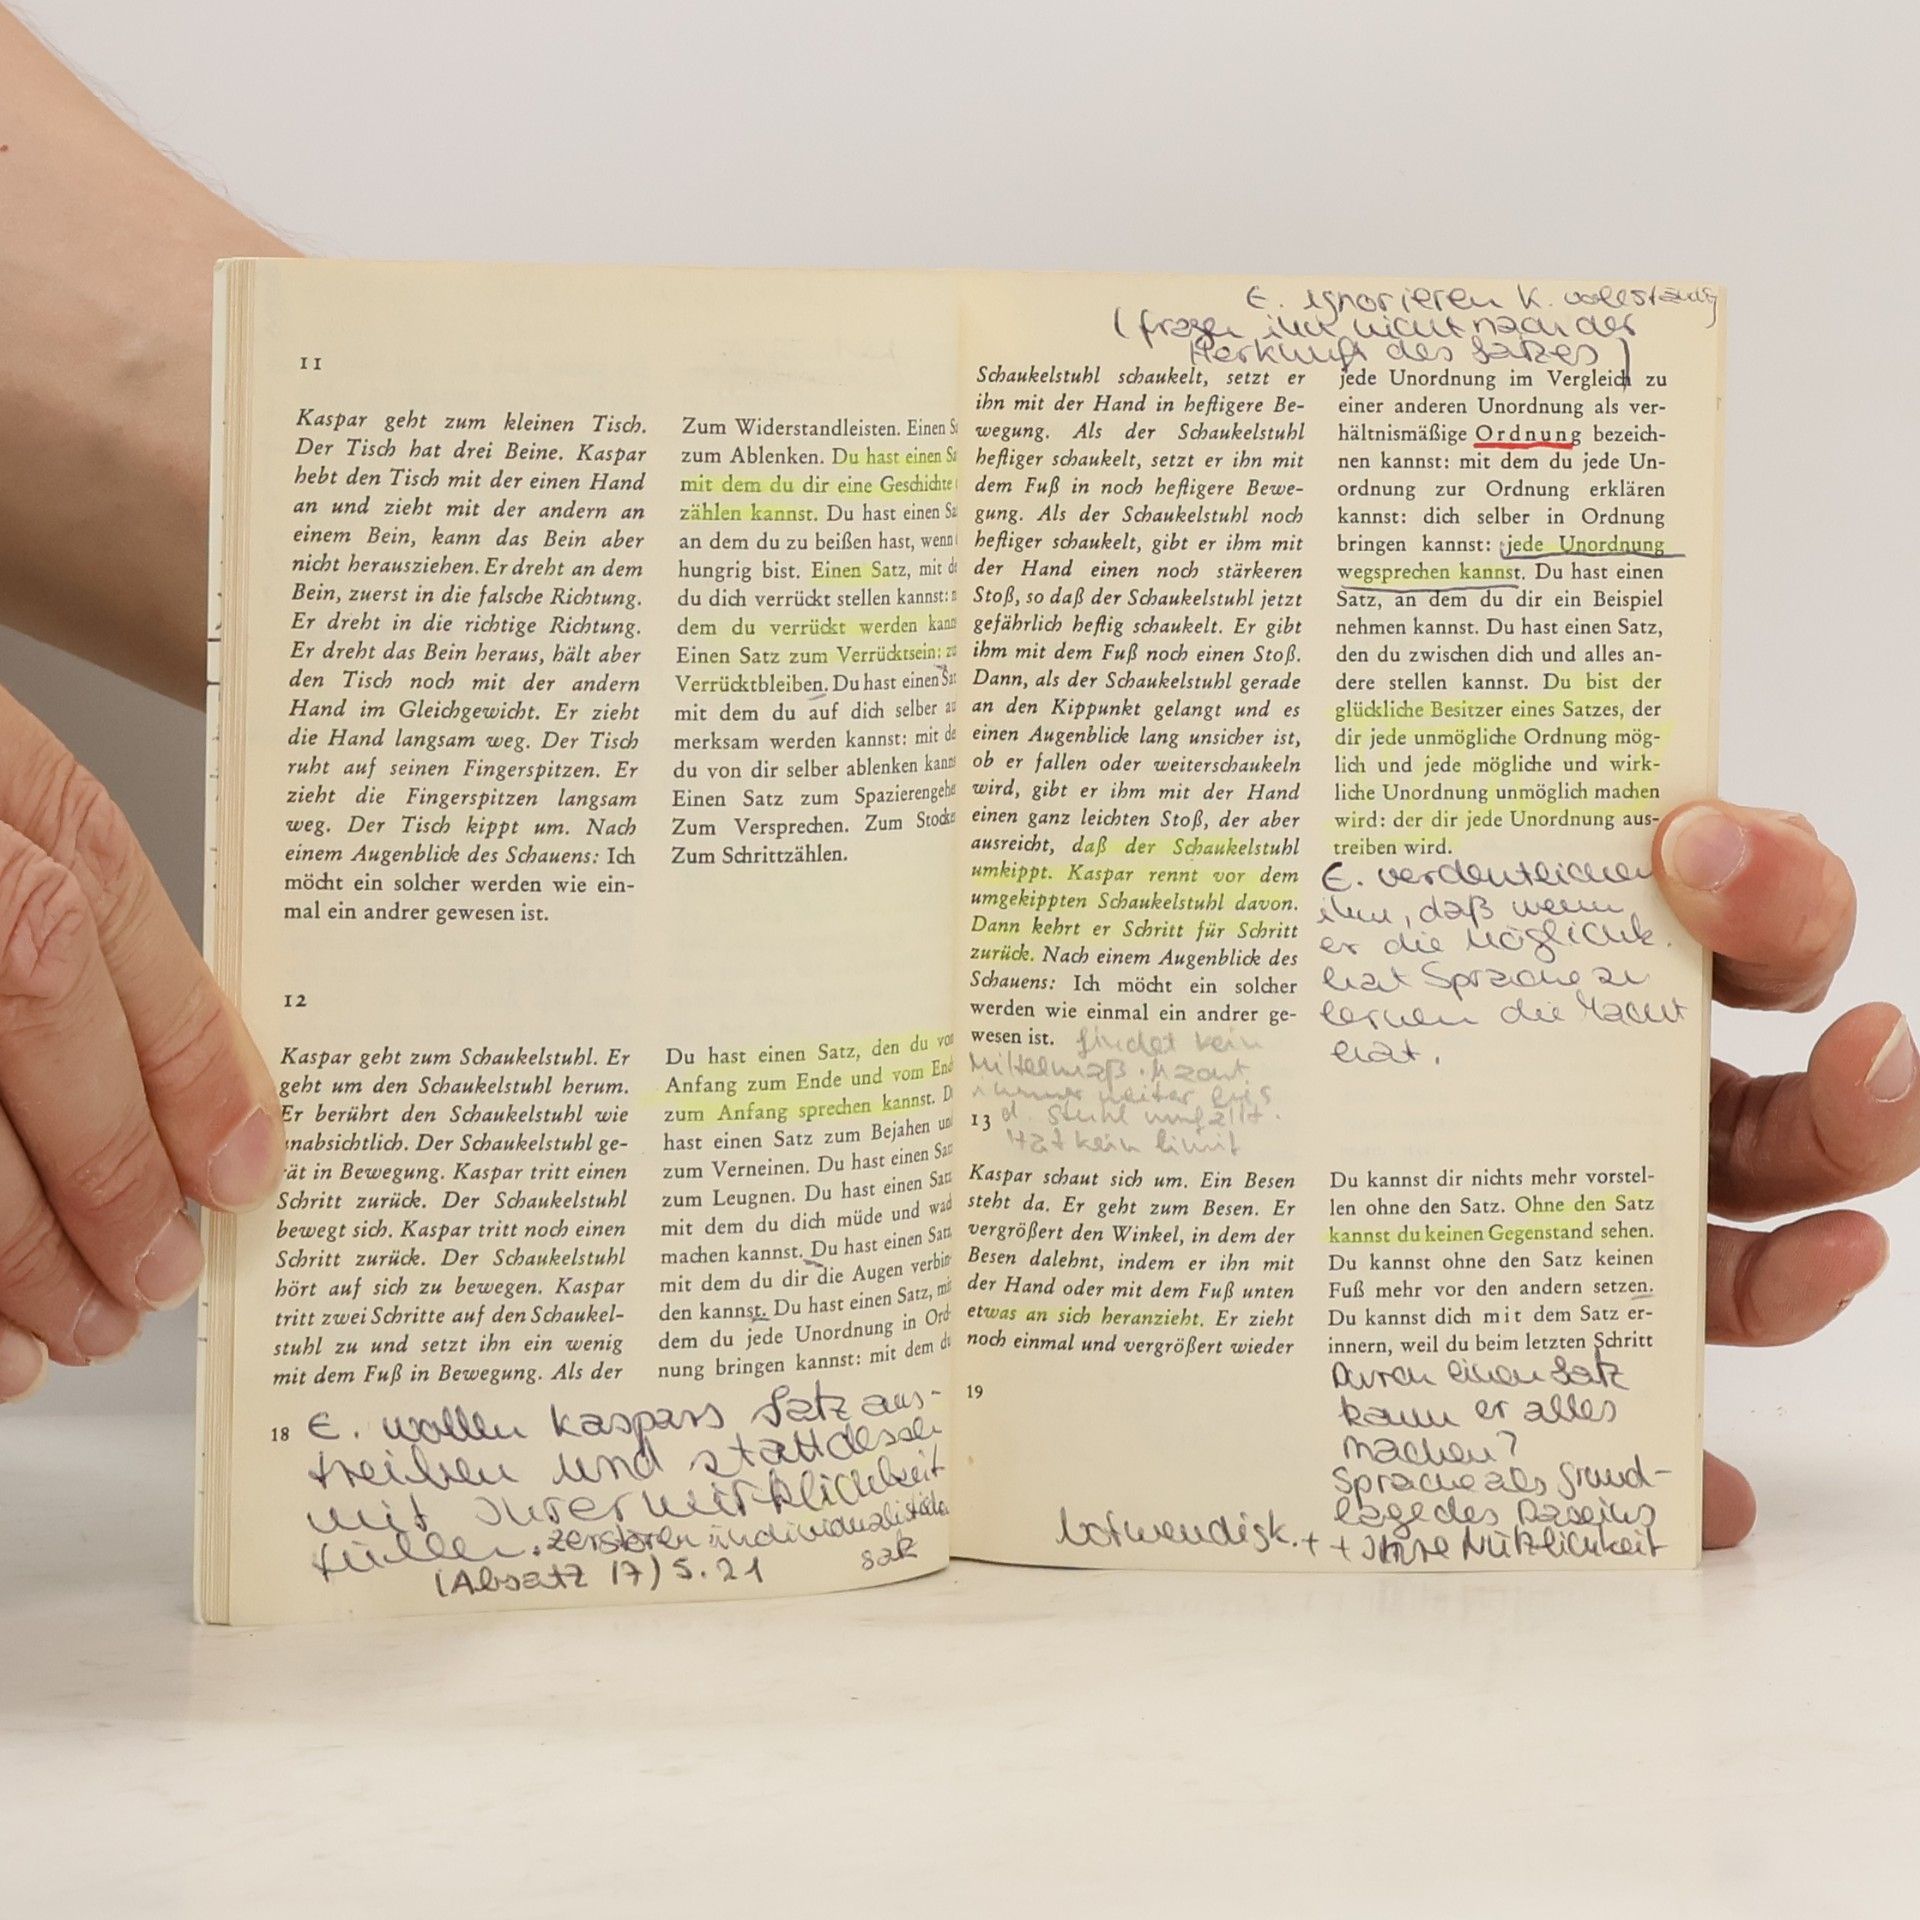 11
Kaspar geht zum kleinen Tisch.
Der Tisch hat drei Beine. Kaspar
hebt den Tisch mit der einen Hand
an und zieht mit der andern an
einem Bein, kann das Bein aber
nicht herausziehen. Er dreht an dem
Bein, zuerst in die falsche Richtung.
Er dreht in die richtige Richtung.
Er dreht das Bein heraus, hält aber
den Tisch noch mit der andern
Hand im Gleichgewicht. Er zieht
die Hand langsam weg. Der Tisch
ruht auf seinen Fingerspitzen. Er
zieht die Fingerspitzen langsam
weg. Der Tisch kippt um. Nach
einem Augenblick des Schauens: Ich
möcht ein solcher werden wie ein-
mal ein andrer gewesen ist.
Zum Widerstandleisten. Einen
zum Ablenken. Du hast einen
mit dem du dir eine Geschichte
zählen kannst. Du hast einen
an dem du zu beißen hast, wenn
hungrig bist. Einen Satz, mit
du dich verrückt stellen kannst:
dem du verrückt werden
Einen Satz zum Verrücktsein:
Verrücktbleiben. Du hast einen
mit dem du auf dich selber
merksam werden kannst: mit
du von dir selber ablenken
Einen Satz zum
Zum Versprechen. Zum
Zum Schrittzählen.
12
Kaspar geht zum Schaukelstuhl. Er
geht um den Schaukelstuhl herum.
Er berührt den Schaukelstuhl wie
unabsichtlich. Der Schaukelstuhl ge-
rät in Bewegung. Kaspar tritt einen
Schritt zurück. Der Schaukelstuhl
bewegt sich. Kaspar tritt noch einen
Schritt zurück. Der Schaukelstuhl
hört auf sich zu bewegen. Kaspar
tritt zwei Schritte auf den Schaukel-
stuhl zu und setzt ihn ein wenig
mit dem Fuß in Bewegung. Als der
Du hast einen Satz, den du
Anfang zum Ende und vom
zum Anfang sprechen kannst.
hast einen Satz zum Bejahen
zum Verneinen. Du hast einen
zum Leugnen. Du hast einen
mit dem du dich müde und
machen kannst. Du hast einen
mit dem du dir die Augen verbin-
den kannst. Du hast einen Satz, mit
dem du jede Unordnung in Ord-
nung bringen kannst: mit dem du
18
E. wollen Kaspars Satz aus-
treiben und stattdessen
mit Ihrer Wirklichkeit
füllen. zerstören
(Absatz 17) S. 21
E. ignorieren K. vollständig
(fragen ihn nicht nach der
Herkunft des Satzes)
Schaukelstuhl schaukelt, setzt er
ihn mit der Hand in heftigere Be-
wegung. Als der Schaukelstuhl
heftiger schaukelt, setzt er ihn mit
dem Fuß in noch heftigere Bewe-
gung. Als der Schaukelstuhl noch
heftiger schaukelt, gibt er ihm mit
der Hand einen noch stärkeren
Stoß, so daß der Schaukelstuhl jetzt
gefährlich heftig schaukelt. Er gibt
ihm mit dem Fuß noch einen Stoß.
Dann, als der Schaukelstuhl gerade
an den Kippunkt gelangt und es
einen Augenblick lang unsicher ist,
ob er fallen oder weiterschaukeln
wird, gibt er ihm mit der Hand
einen ganz leichten Stoß, der aber
ausreicht, daß der Schaukelstuhl
umkippt. Kaspar rennt vor dem
umgekippten Schaukelstuhl davon.
Dann kehrt er Schritt für Schritt
zurück. Nach einem Augenblick des
Schauens: Ich möcht ein solcher
werden wie einmal ein andrer ge-
wesen ist.
findet kein
Mittelmaß. Macht
immer weiter bis
d. Stuhl umfällt.
Hat kein Limit
jede Unordnung im Vergleich zu
einer anderen Unordnung als ver-
hältnismäßige Ordnung bezeich-
nen kannst: mit dem du jede Un-
ordnung zur Ordnung erklären
kannst: dich selber in Ordnung
bringen kannst: jede Unordnung
wegsprechen kannst. Du hast einen
Satz, an dem du dir ein Beispiel
nehmen kannst. Du hast einen Satz,
den du zwischen dich und alles an-
dere stellen kannst. Du bist der
glückliche Besitzer eines Satzes, der
dir jede unmögliche Ordnung mög-
lich und jede mögliche und wirk-
liche Unordnung unmöglich machen
wird: der dir jede Unordnung aus-
treiben wird.
E. verdeutlichen
ihm, daß wenn
er die Möglichk.
hat Sprache zu
lernen die Macht
hat.
13
Kaspar schaut sich um. Ein Besen
steht da. Er geht zum Besen. Er
vergrößert den Winkel, in dem der
Besen dalehnt, indem er ihn mit
der Hand oder mit dem Fuß unten
etwas an sich heranzieht. Er zieht
noch einmal und vergrößert wieder
Du kannst dir nichts mehr vorstel-
len ohne den Satz. Ohne den Satz
kannst du keinen Gegenstand sehen.
Du kannst ohne den Satz keinen
Fuß mehr vor den andern setzen.
Du kannst dich mit dem Satz er-
innern, weil du beim letzten Schritt
19
Durch einen Satz
kann er alles
machen?
Sprache als Grund-
lage des Daseins
Notwendigk. + + Ihre Nützlichkeit